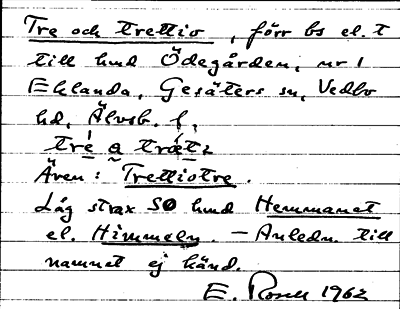 Tre och trettio, förr bs el. t
till hmd Ödegården, nr 1
Eklanda, Gesäters sn, Vedbo
hd, Älvsb. l,
tre a trætz
Även: Trettiotre.
Låg strax SØ hmd Hemmanet
el. Himmeln. – Anledn. till
namnet ej känd.
E. Rosell 1962